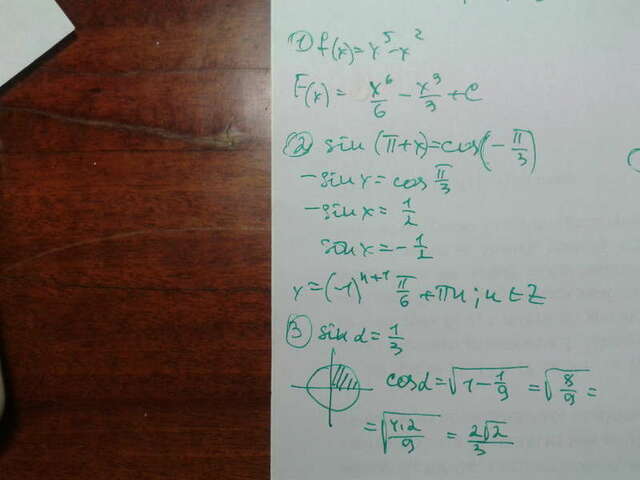 ① f(x)=x⁵-x²
F(x)= x⁶/6 - x³/3 + C
② sin(π+x)=cos(-π/3)
-sin x = cos π/3
-sin x = 1/2
sin x = -1/2
x=(-1)ⁿ⁺¹ π/6 + πn; n∈Z
③ sin α = 1/3
cos α = √(1-1/9) = √(8/9) =
= √(4·2/9) = 2√2/3